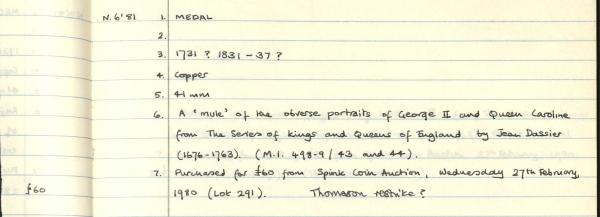 N. 6'81 1. MEDAL
2.
3. 1731 ? 1831 - 37 ?
4. Copper
5. 41 mm
6. A 'mule' of the obverse portraits of George II and Queen Caroline
from The Series of Kings and Queens of England by Jean Dassier
(1676-1763). (M.I. 498-9 / 43 and 44).
7. Purchased for £60 from Spink Coin Auction, Wednesday 27th February,
£60 1980 (Lot 291). Thomason restrike ?